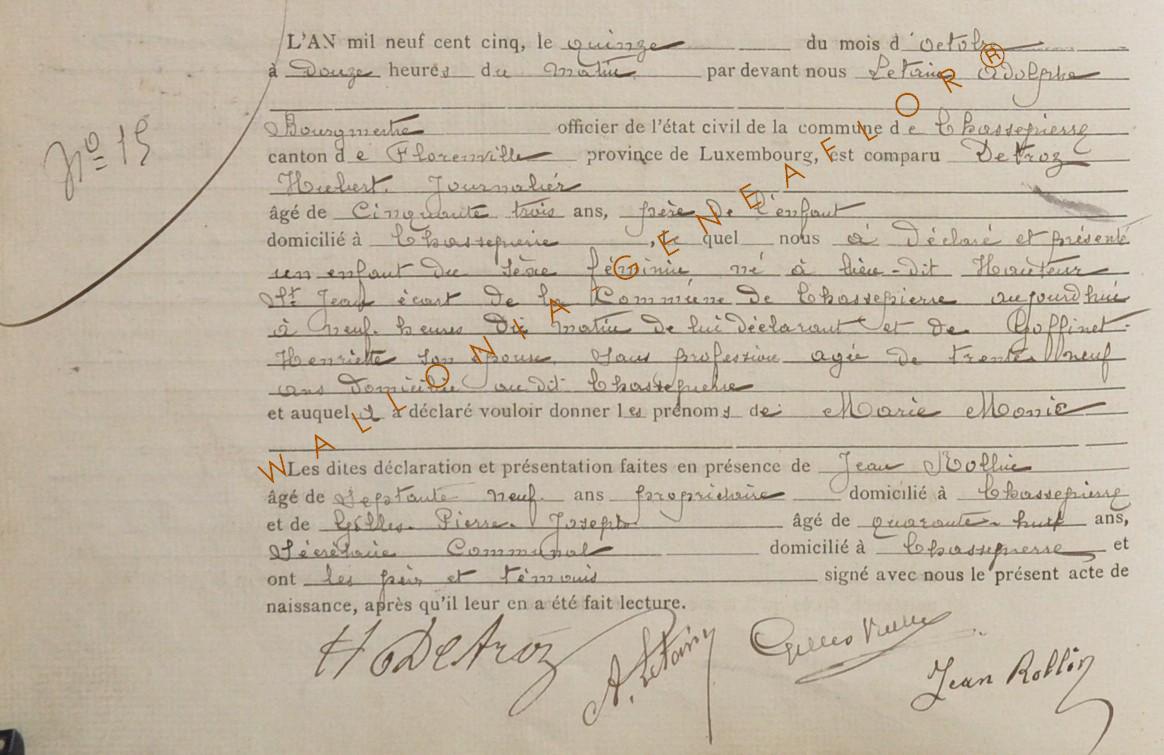 L'AN mil neuf cent cinq, le quinze du mois d'octobre
à Douze heures du matin par devant nous Letaine Adolphe
Bourgmestre officier de l'état civil de la commune de Chassepierre
No 15
canton de Florenville province de Luxembourg, est comparu Detroz
Hubert. Journalier
âgé de Cinquante trois ans, père de l'enfant
domicilié à Chassepierre, le quel nous a Déclaré et présenté
un enfant du sexe féminin né à lieu-dit Hauteur
St Jean écart de la Commune de Chassepierre aujourd'hui
à neuf heures du matin de lui déclarant et de Goffinet
Henriette son épouse, sans profession agée de trente neuf
ans domiciliée au dit Chassepierre
et auquel il a déclaré vouloir donner les prénoms de Marie Monic
Les dites déclaration et présentation faites en présence de Jean Rollin
âgé de septante neuf ans propriétaire domicilié à Chassepierre
et de Gilles Pierre Joseph âgé de quarante huit ans,
Sécrétaire Communal domicilié à Chassepierre et
ont les père et témoins signé avec nous le présent acte de
naissance, après qu'il leur en a été fait lecture.
H Detroz A. Letaine Gilles Jean Rollin
WALLONIA GENEAFLOR®